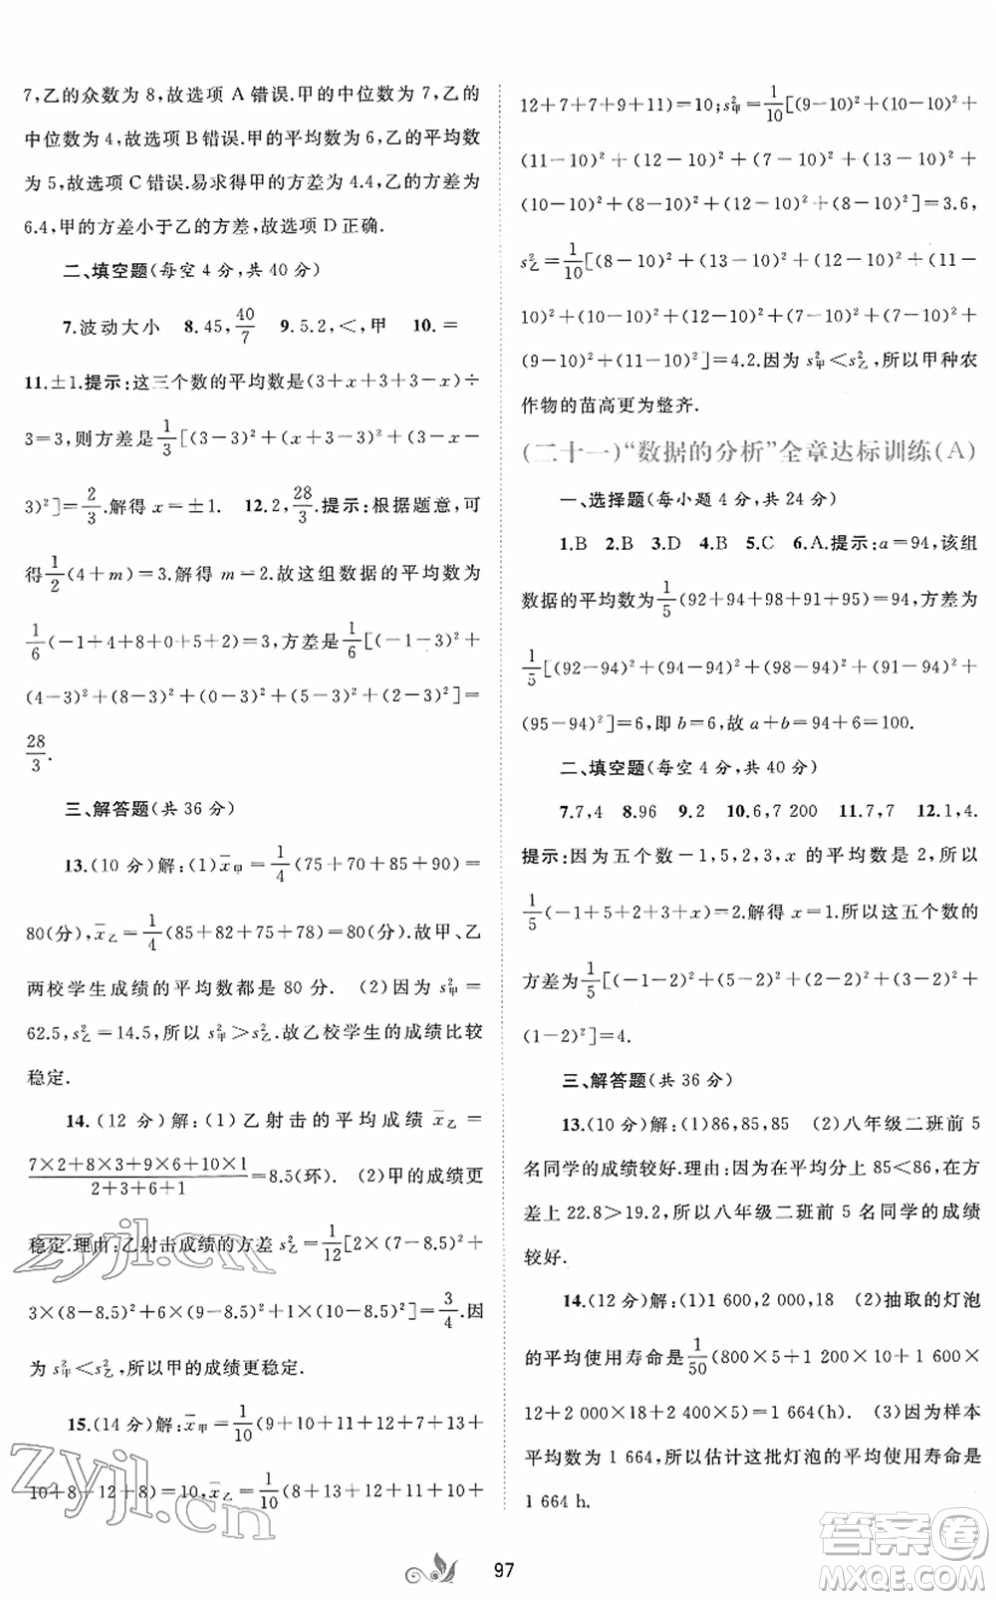 7,乙的众数为 8,故选项 A 错误.甲的中位数为 7,乙的
中位数为 4,故选项 B 错误.甲的平均数为 6,乙的平均数
为 5,故选项 C 错误.易求得甲的方差为 4.4,乙的方差为
6.4,甲的方差小于乙的方差,故选项 D 正确.
二、填空题(每空 4 分,共 40 分)
7.波动大小 8.45,40/7 9.5.2,<,甲 10.=
11.±1.提示:这三个数的平均数是(3+x+3+3-x)÷
3=3,则方差是1/3[(3-3)²+(x+3-3)²+(3-x-
3)²]=2/3.解得 x=±1. 12.2,28/3.提示:根据题意,可
得1/2(4+m)=3.解得 m=2.故这组数据的平均数为
1/6(-1+4+8+0+5+2)=3,方差是1/6[(-1-3)²+
(4-3)²+(8-3)²+(0-3)²+(5-3)²+(2-3)²]=
28/3.
三、解答题(共 36 分)
13.(10 分)解:(1)x̄甲=1/4(75+70+85+90)=
80(分),x̄乙=1/4(85+82+75+78)=80(分).故甲、乙
两校学生成绩的平均数都是 80 分. (2)因为 s²甲=
62.5,s²乙=14.5,所以 s²甲>s²乙.故乙校学生的成绩比较
稳定.
14.(12 分)解:(1)乙射击的平均成绩 x̄乙=
(7×2+8×3+9×6+10×1)/(2+3+6+1)=8.5(环). (2)甲的成绩更
稳定.理由:乙射击成绩的方差 s²乙=1/12[2×(7-8.5)²+
3×(8-8.5)²+6×(9-8.5)²+1×(10-8.5)²]=3/4.因
为 s²甲<s²乙,所以甲的成绩更稳定.
15.(14 分)解:x̄甲=1/10(9+10+11+12+7+13+
10+8+12+8)=10,x̄乙=1/10(8+13+12+11+10+
12+7+7+9+11)=10;s²甲=1/10[(9-10)²+(10-10)²+
(11-10)²+(12-10)²+(7-10)²+(13-10)²+
(10-10)²+(8-10)²+(12-10)²+(8-10)²]=3.6,
s²乙=1/10[(8-10)²+(13-10)²+(12-10)²+(11-
10)²+(10-10)²+(12-10)²+(7-10)²+(7-10)²+
(9-10)²+(11-10)²]=4.2.因为 s²甲<s²乙,所以甲种农
作物的苗高更为整齐.
(二十一)“数据的分析”全章达标训练(A)
一、选择题(每小题 4 分,共 24 分)
1.B 2.B 3.D 4.B 5.C 6.A.提示:a=94,该组
数据的平均数为1/5(92+94+98+91+95)=94,方差为
1/5[(92-94)²+(94-94)²+(98-94)²+(91-94)²+
(95-94)²]=6,即 b=6,故 a+b=94+6=100.
二、填空题(每空 4 分,共 40 分)
7.7,4 8.96 9.2 10.6,7 200 11.7,7 12.1,4.
提示:因为五个数-1,5,2,3,x 的平均数是 2,所以
1/5(-1+5+2+3+x)=2.解得 x=1.所以这五个数的
方差为1/5[(-1-2)²+(5-2)²+(2-2)²+(3-2)²+
(1-2)²]=4.
三、解答题(共 36 分)
13.(10 分)解:(1)86,85,85 (2)八年级二班前 5
名同学的成绩较好.理由:因为在平均分上 85<86,在方
差上 22.8>19.2,所以八年级二班前 5 名同学的成绩
较好.
14.(12 分)解:(1)1 600,2 000,18 (2)抽取的灯泡
的平均使用寿命是1/50(800×5+1 200×10+1 600×
12+2 000×18+2 400×5)=1 664(h). (3)因为样本
平均数为 1 664,所以估计这批灯泡的平均使用寿命是
1 664 h.
97
zyjl.cn
zyjl.cn
答案卷
MXQE.COM